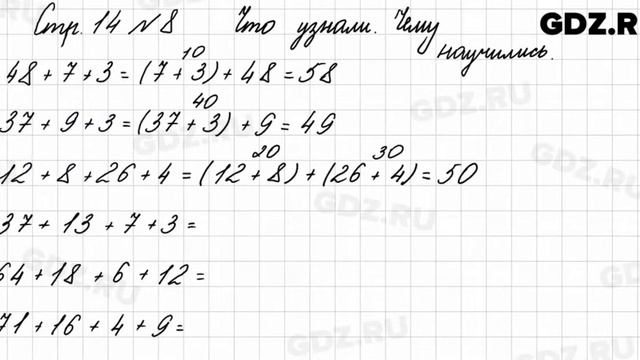 Стр. 14 №8 Что узнали. Чему научились.
GDZ.R
48 + 7 + 3 = (7 + 3) + 48 = 58
10
37 + 9 + 3 = (37 + 3) + 9 = 49
40
12 + 8 + 26 + 4 = (12 + 8) + (26 + 4) = 50
20 30
37 + 13 + 7 + 3 =
64 + 18 + 6 + 12 =
71 + 16 + 4 + 9 =
GDZ.RU
GDZ.RU
GDZ.RU
GDZ.RU
GDZ.RU
GDZ.RU